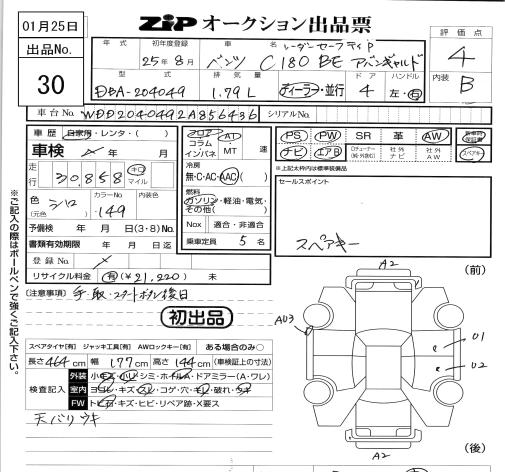 01月25日
ZiP オークション出品票
出品No.
30
年式 初年度登録 車名 ドア ハンドル
25年8月 ベンツ C180 BE アバンギャルド
レーダーセーフティP
型式 排気量
DBA-204049 1.79L ディーラー・並行 4 左・右
評価点
4
内装
B
車台No. WDD2040492A856436 シリアルNo.
車歴 自家用・レンタ・( )
車検 年 月
走行 30,858 キロ マイル
色 シロ カラーNo. 149 内装色
(元色)
予備検 年 月 日(3・8)No.
書類有効期限 年 月 日迄
登録No.
リサイクル料金 有(¥21,220) 未
フロア AT
コラム
インパネ MT 速
冷房
無・C・AC・AAC( )
燃料
ガソリン・軽油・電気・
その他( )
Nox 適合・非適合
乗車定員 5 名
PS PW SR 革 AW
ナビ エアB 社外ナビ 社外AW スペアキー
※上記太枠内は標準装備品
セールスポイント
スペアキー
(注意事項) 手・取・スタートボタン後日
初出品
スペアタイヤ[有] ジャッキ工具[有] AWロックキー[有] ある場合のみ○
長さ464cm 幅177cm 高さ144cm (車検証上の寸法)
検査記入
外装 小キズ・ハリ・シミ・ホイルA・ドアミラー(A・ワレ)
室内 ヨゴレ・キズ・スレ・コゲ・穴・キレ・破れ・ウキ
FW トビ石・キズ・ヒビ・リペア跡・X要ス
天バリウキ
※ご記入の際はボールペンで強くご記入下さい。
A2 (前)
AU3
U1
U2
A2 (後)